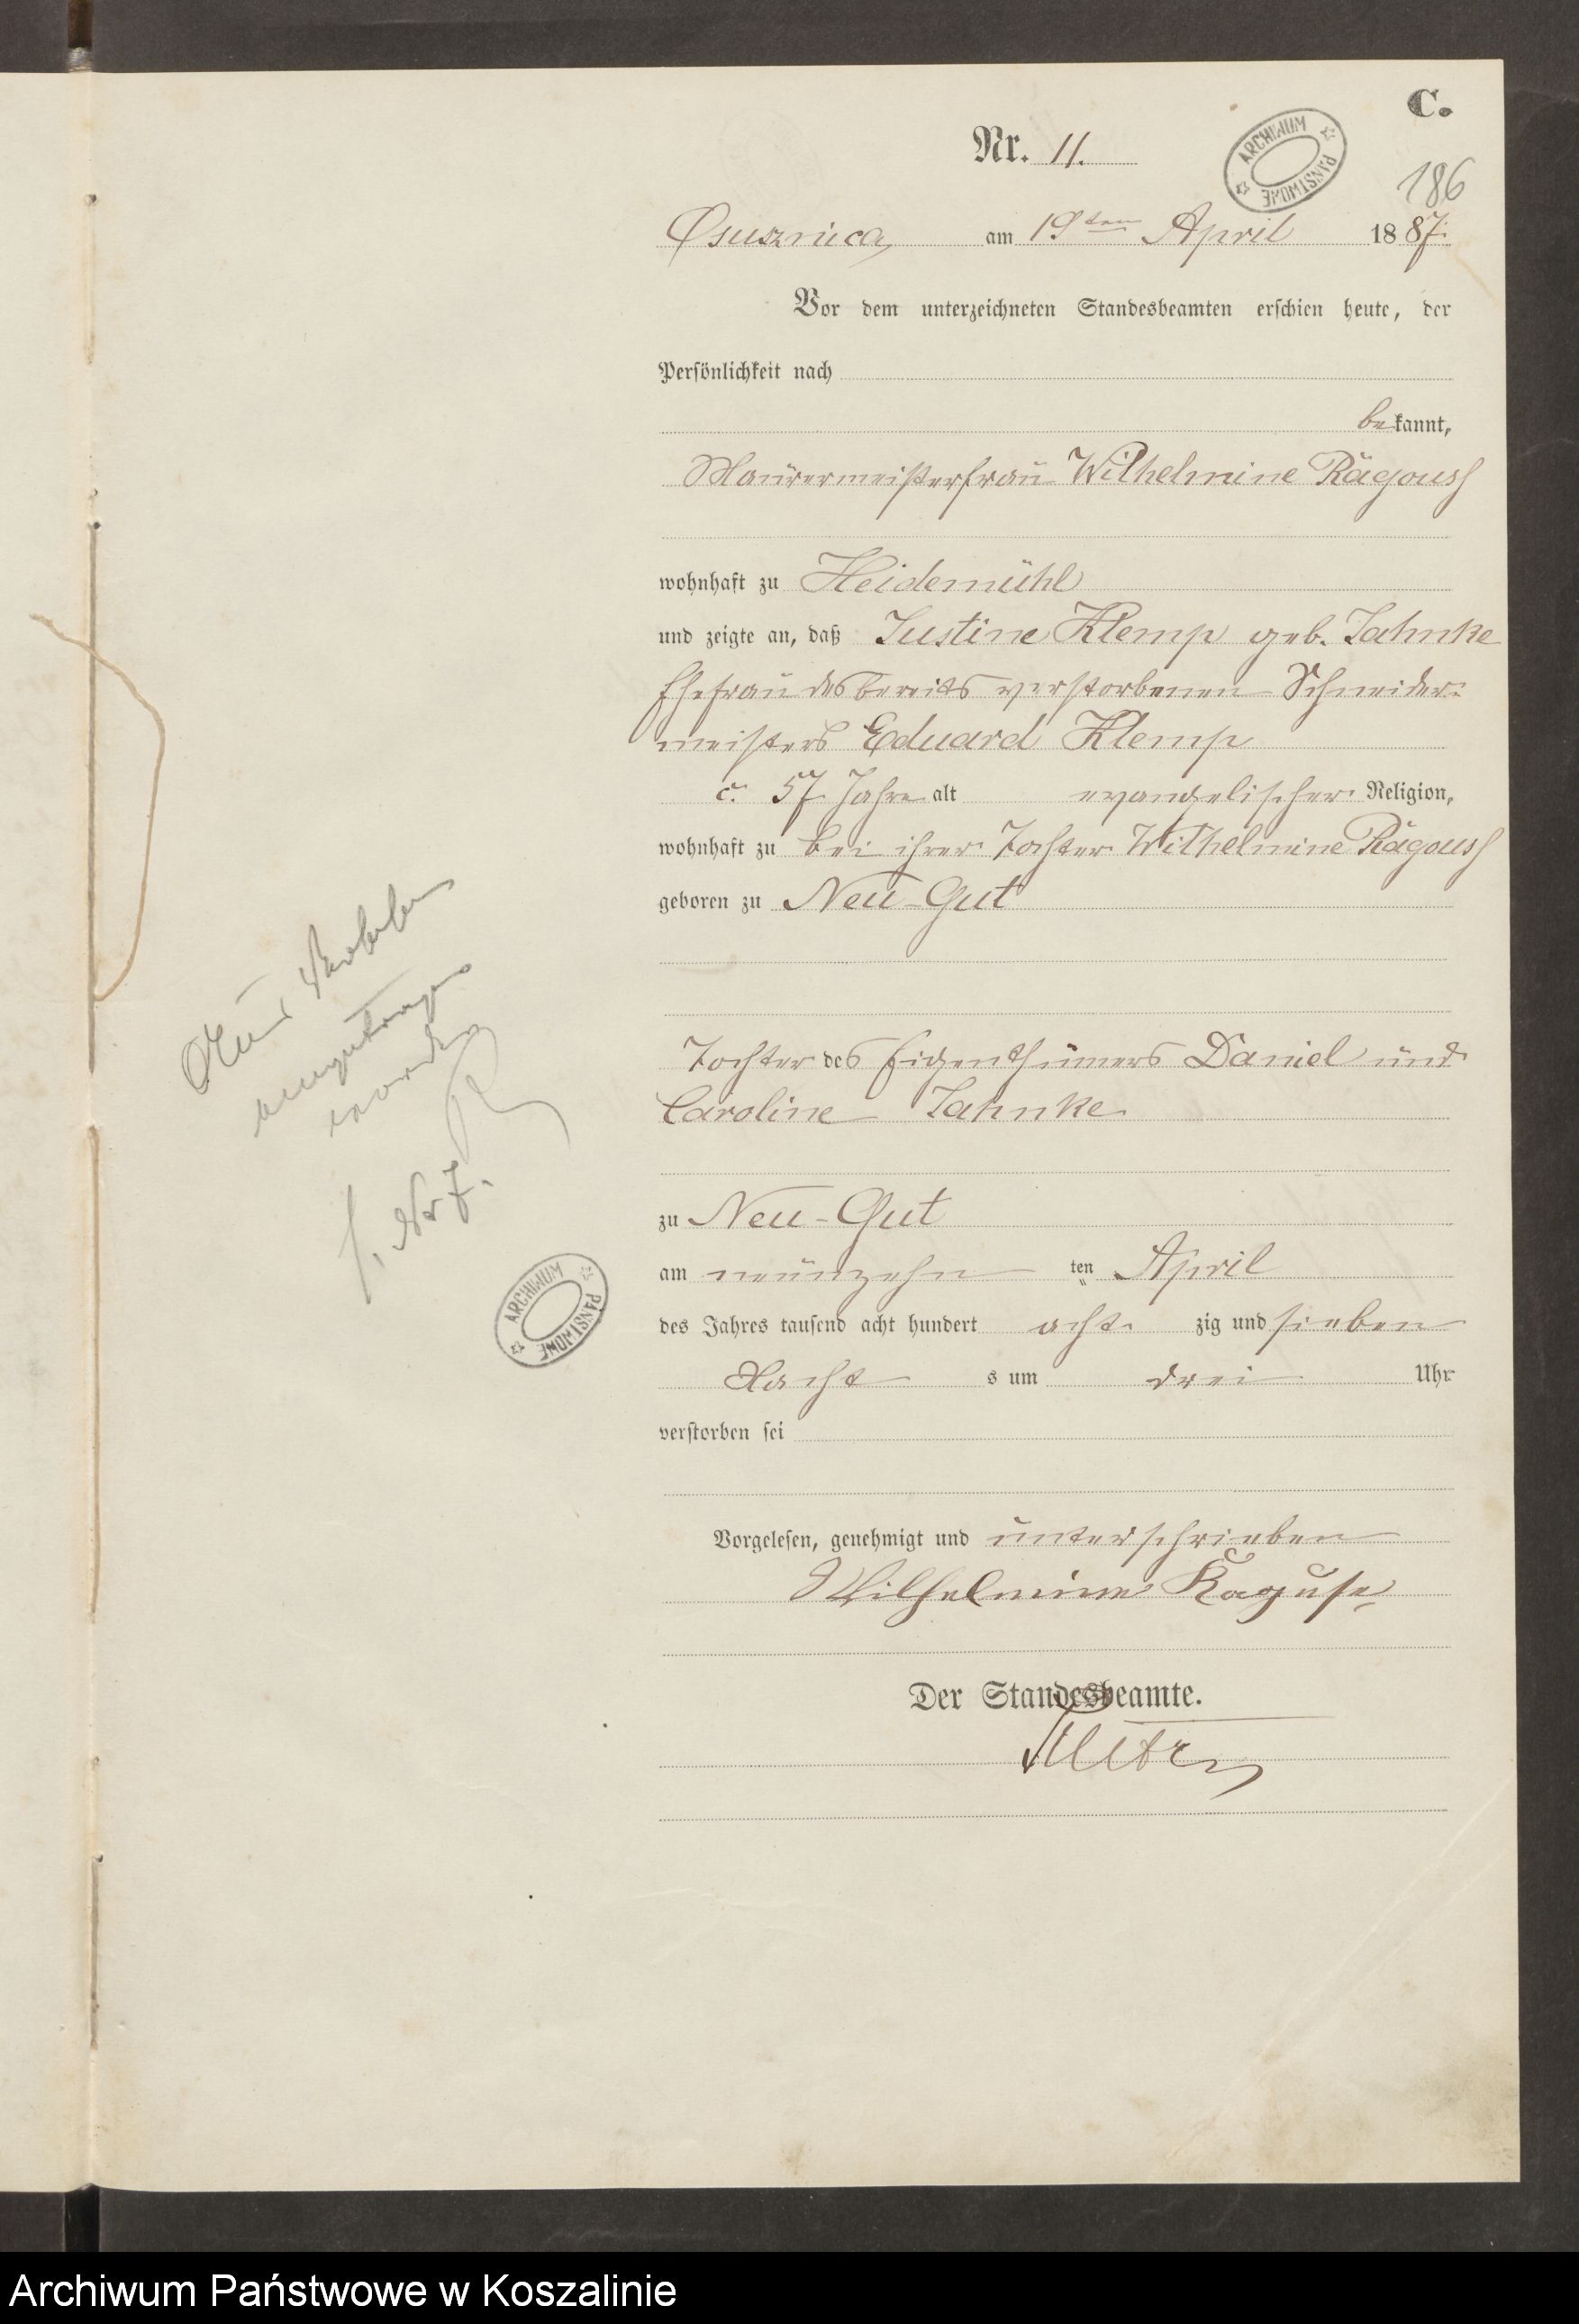 C.
Nr. 11.
ARCHIWUM PAŃSTWOWE
186
Osusznica, am 19ten April 1887.
Vor dem unterzeichneten Standesbeamten erschien heute, der
Persönlichkeit nach
bekannt,
Maurermeisterfrau Wilhelmine Rägousch
wohnhaft zu Heidemühl
und zeigte an, daß Justine Klemp geb. Jahnke
Ehefrau des bereits verstorbenen Schneider-
meisters Eduard Klemp
c. 57 Jahre alt evangelischer Religion,
wohnhaft zu bei ihrer Tochter Wilhelmine Rägousch
geboren zu Neu-Gut
Tochter des Eigenthümers Daniel und
Caroline Jahnke
zu Neu-Gut
am neunzehn ten April
des Jahres tausend acht hundert acht zig und sieben
Nacht s um drei Uhr
verstorben sei
Vorgelesen, genehmigt und unterschrieben
Wilhelmine Raguse
Der Standesbeamte.
eingetragen
worden
s. Nr 7.
ARCHIWUM PAŃSTWOWE
Archiwum Państwowe w Koszalinie